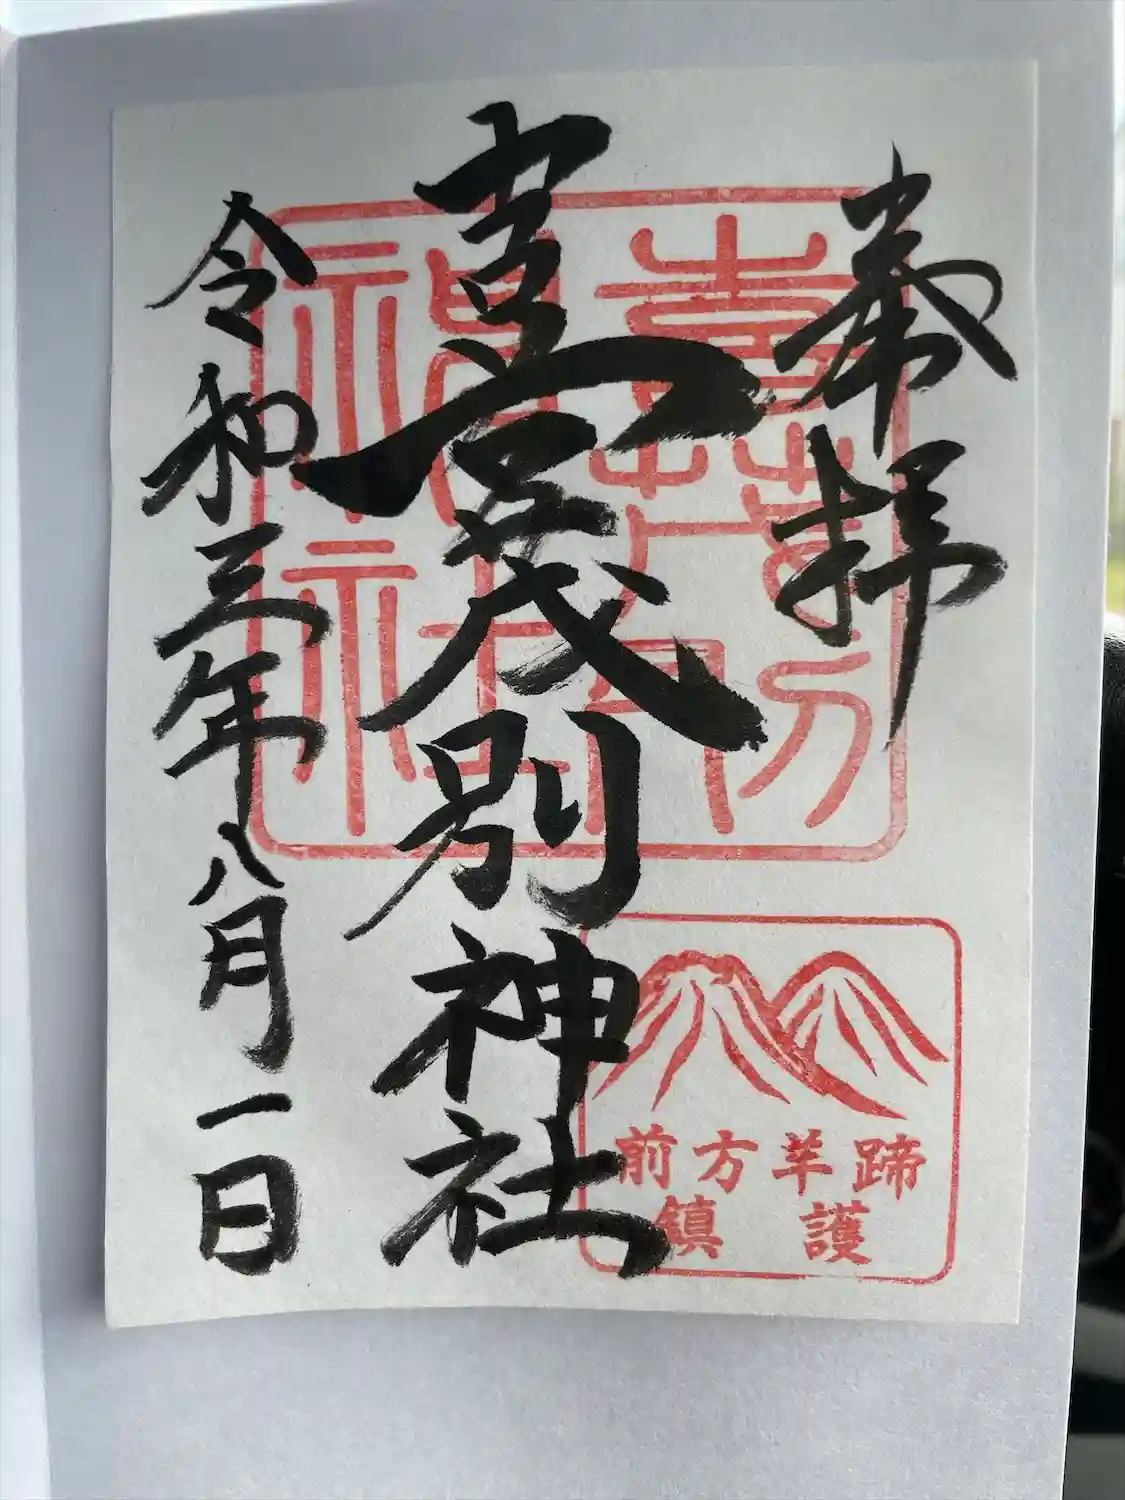 奉拝
喜茂別神社
令和三年八月一日
前方羊蹄
鎮護